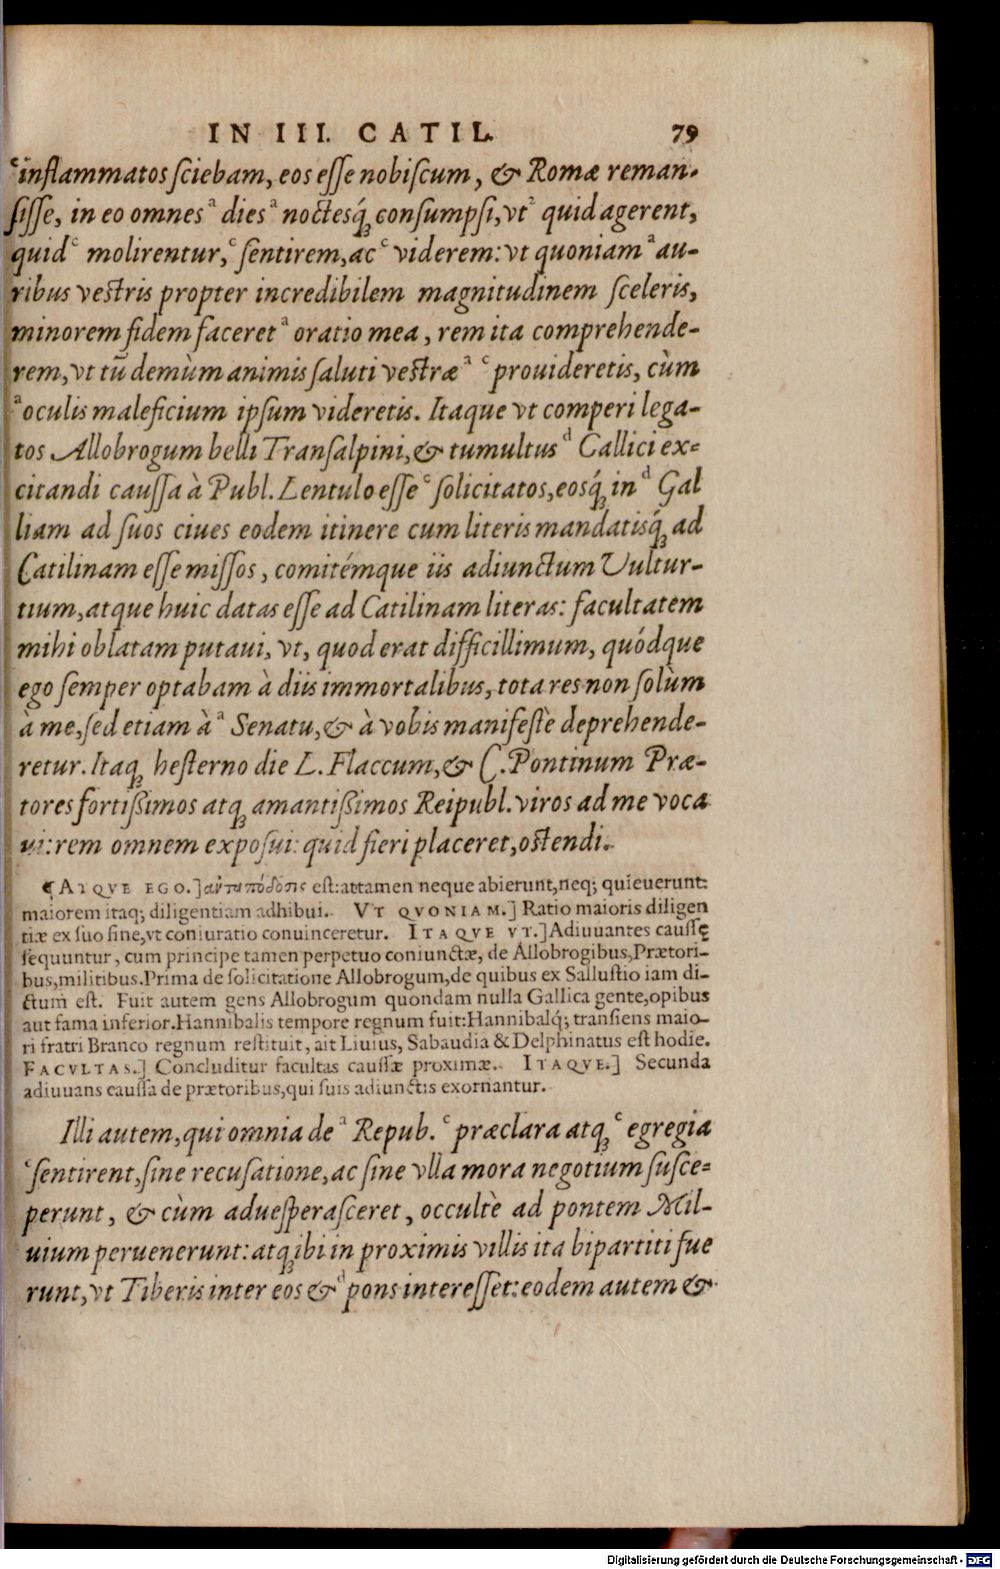 IN III. CATIL. 79
ᶜinflammatos sciebam, eos esse nobiscum, & Romæ reman-
sisse, in eo omnesᵃ diesᵃ noctesq́ꝫ consumpsi, vt² quid agerent,
quidᶜ molirentur,ᶜ sentirem, acᶜ viderem: vt quoniamᵃ au-
ribus vestris propter incredibilem magnitudinem sceleris,
minorem fidem faceretᵃ oratio mea, rem ita comprehende-
rem, vt tū demùm animis saluti vestræᵃ ᶜprouideretis, cùm
ᵃoculis maleficium ipsum videretis. Itaque vt comperi lega-
tos Allobrogum belli Transalpini, & tumultusᵈ Gallici ex-
citandi caussa à Publ. Lentulo esseᶜ solicitatos, eosq́ꝫ inᵈ Gal
liam ad suos ciues eodem itinere cum literis mandatisq́ꝫ ad
Catilinam esse missos, comitémque iis adiunctum Vultur-
tium, atque huic datas esse ad Catilinam literas: facultatem
mihi oblatam putaui, vt, quod erat difficillimum, quódque
ego semper optabam à diis immortalibus, tota res non solùm
à me, sed etiam àᵃ Senatu, & à vobis manifestè deprehende-
retur. Itaqꝫ hesterno die L. Flaccum, & C. Pontinum Præ-
tores fortißimos atqꝫ amantißimos Reipubl. viros ad me voca
ui: rem omnem exposui: quid fieri placeret, ostendi.
¶ATQVE EGO.] ἀνταπόδοσις est: attamen neque abierunt, neq; quieuerunt:
maiorem itaq; diligentiam adhibui. VT QVONIAM.] Ratio maioris diligen
tiæ ex suo fine, vt coniuratio conuinceretur. ITAQVE VT.] Adiuuantes caussę
sequuntur, cum principe tamen perpetuo coniunctæ, de Allobrogibus, Prætori-
bus, militibus. Prima de solicitatione Allobrogum, de quibus ex Sallustio iam di-
ctum est. Fuit autem gens Allobrogum quondam nulla Gallica gente, opibus
aut fama inferior. Hannibalis tempore regnum fuit: Hannibalq́; transiens maio-
ri fratri Branco regnum restituit, ait Liuius, Sabaudia & Delphinatus est hodie.
FACVLTAS.] Concluditur facultas caussæ proximæ. ITAQVE.] Secunda
adiuuans caussa de prætoribus, qui suis adiunctis exornantur.
Illi autem, qui omnia deᵃ Repub.ᶜ præclara atqꝫᶜ egregia
ᶜsentirent, sine recusatione, ac sine vlla mora negotium susce-
perunt, & cùm aduesperasceret, occultè ad pontem Mil-
uium peruenerunt: atqꝫ ibi in proximis villis ita bipartiti fue
runt, vt Tiberis inter eos &ᵈ pons interesset: eodem autem &
Digitalisierung gefördert durch die Deutsche Forschungsgemeinschaft - DFG